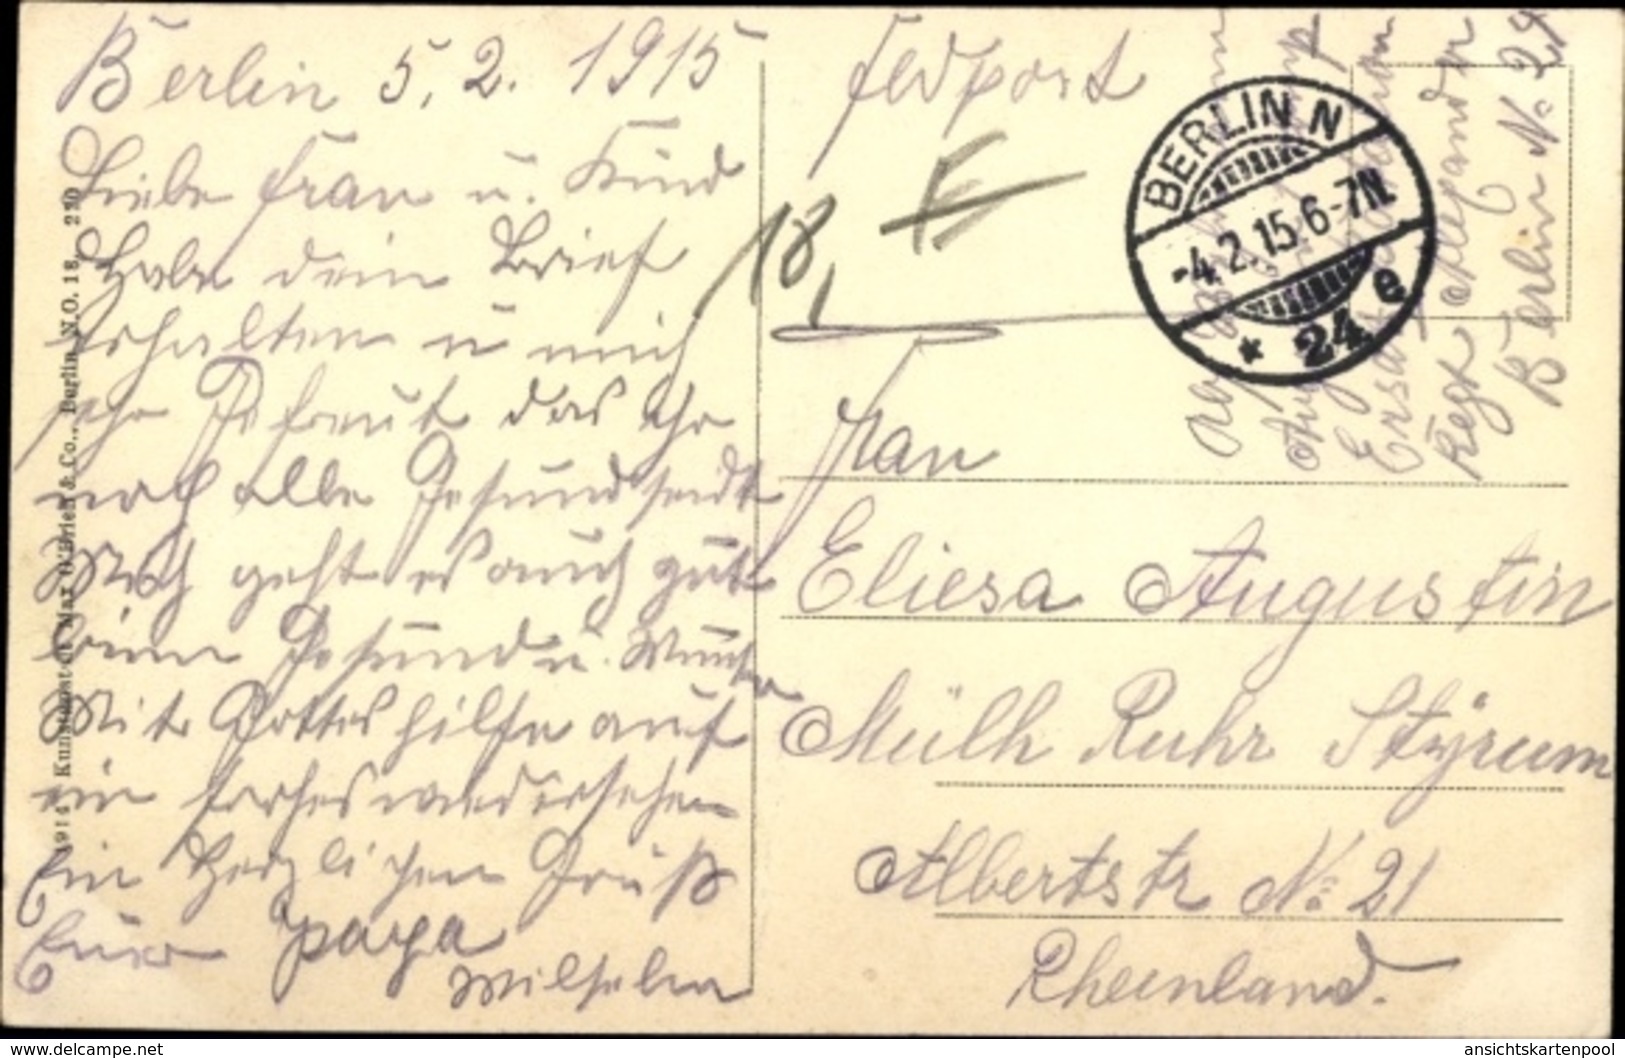 Berlin 5. 2. 1915
Liebe Frau u. Kind
Habe dein Brief
Erhalten u mich
sehr Gefreut das Ihr
noch alle Gesund seidt
Mich geht es auch gut
binn Gesund u. Munter
Mit Gotteshilfe auf
ein frohes wiedersehen
Ein Herzlichen Gruß
Euer papa
Wilhelm
1914 Kunstanstalt Max O'Brien & Co., Berlin N.O. 18. 230
Feldpost
18
BERLIN N
-4.2.15.6-7N.
* 24 e
Regt Alexander
Berlin N. 24
Frau
Eliesa Augustin
Mülh Ruhr Styrum
Albertstr No 21
Rheinland.
www.delcampe.net
ansichtskartenpool